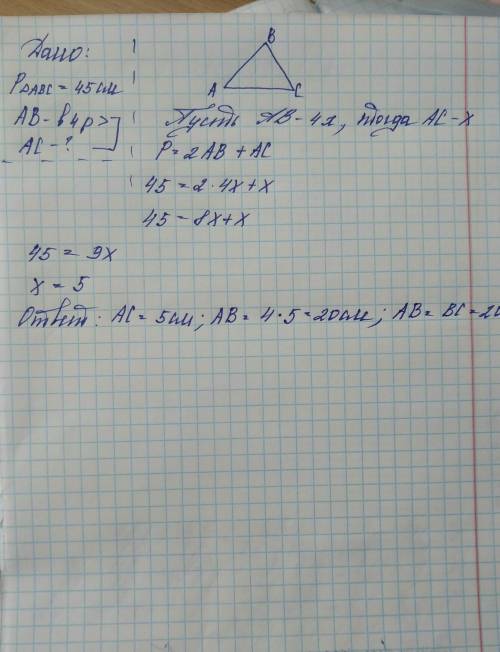 Дано:
B
A
C
P△ABC = 45см
AB - в 4р >
AC - ?
Пусть AB - 4x, тогда AC - x
P = 2AB + AC
45 = 2 · 4x + x
45 = 8x + x
45 = 9x
x = 5
Ответ: AC = 5см; AB = 4 · 5 = 20см; AB = BC = 20